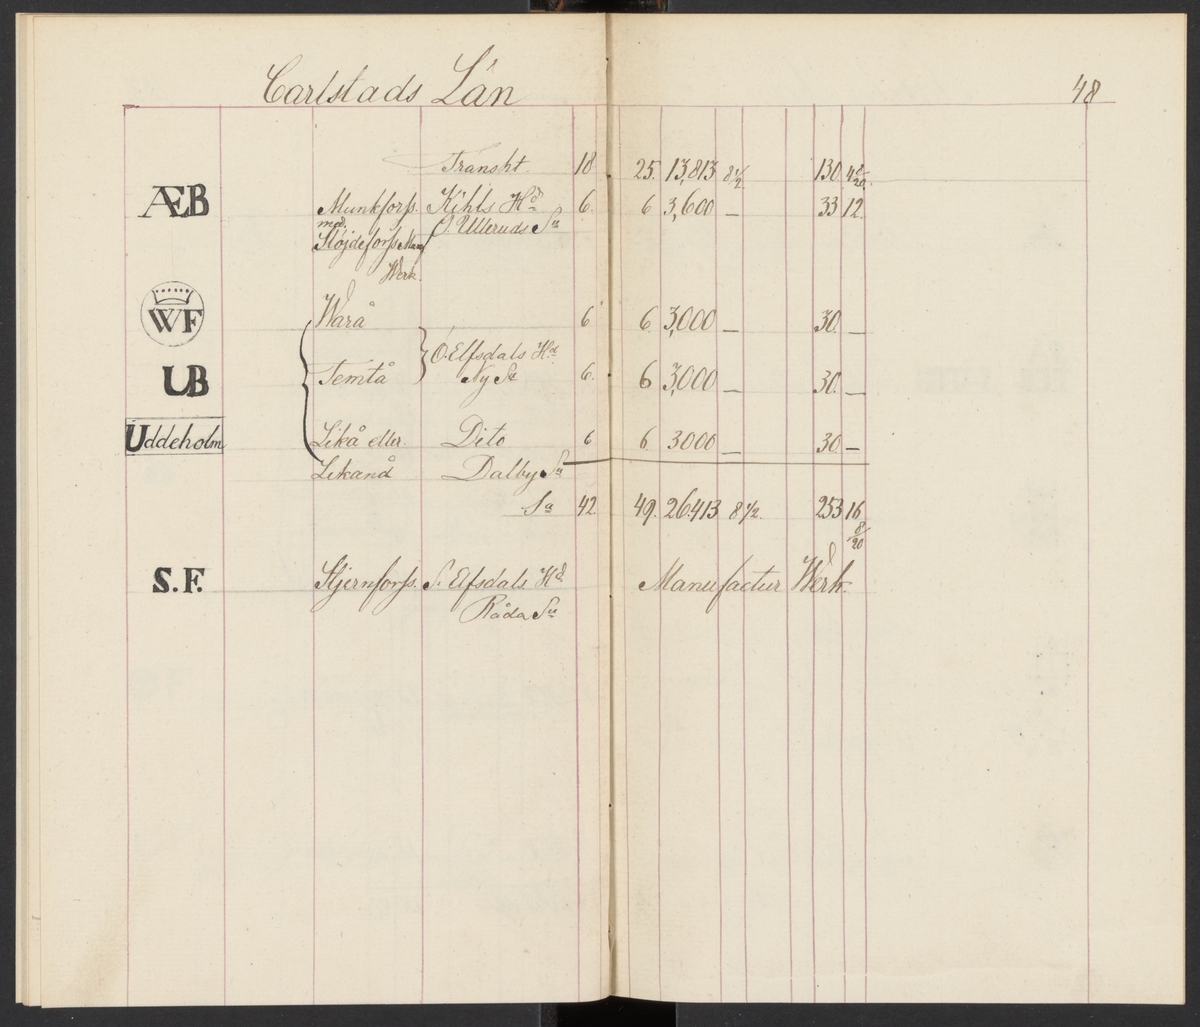 Carlstads Län 48
Transpt. 18 25. 13,813 8 1/2 130. 4 8/20
ÆB Munkforss. Kihls Hd 6. 6 3,600 — 33 12.
med. Ö. Ulleruds Sn
Slöjdeforss Manf
Werk.
WF Warå 6 6. 3,000 — 30. —
Ö. Elfsdals Hd
UB Temtå Ny Sn 6. 6 3,000 — 30. —
Uddeholm Likå eller. Dito 6 6. 3000 — 30. —
Likanå Dalby Sn
Sa 42 49. 26.413 8 1/2. 253 16
8/20
S.F. Stjernforss. S. Elfsdals. Hd Manufactur Werk.
Råda Sn